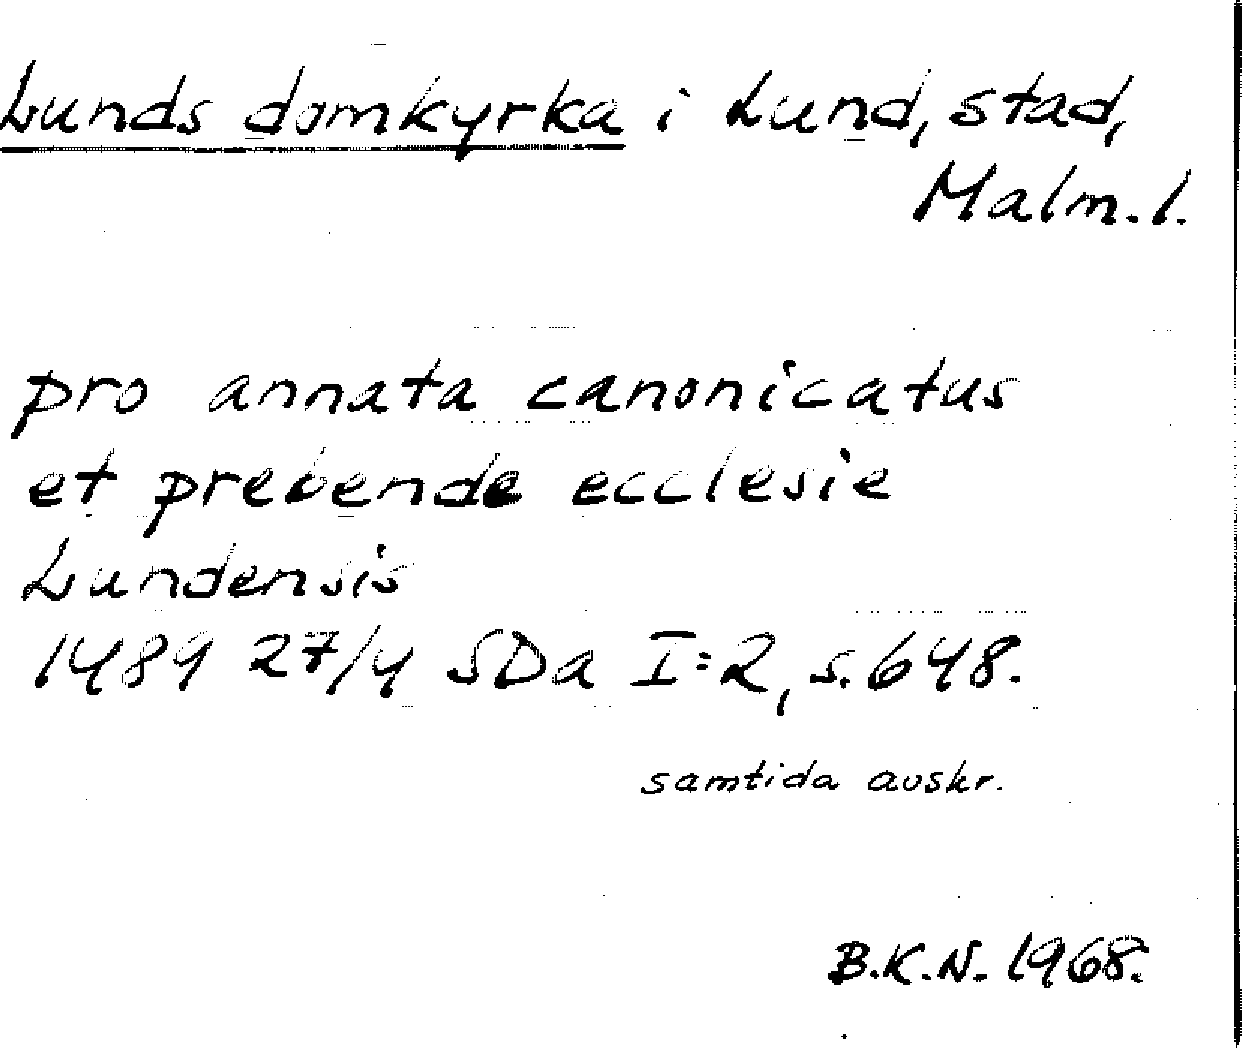 Lunds domkyrka i Lund, stad,
Malm. l.
pro annata canonicatus
et prebende ecclesie
Lundensis
1489 27/4 SDa I:2, s. 648.
samtida avskr.
B.K.N. 1968.